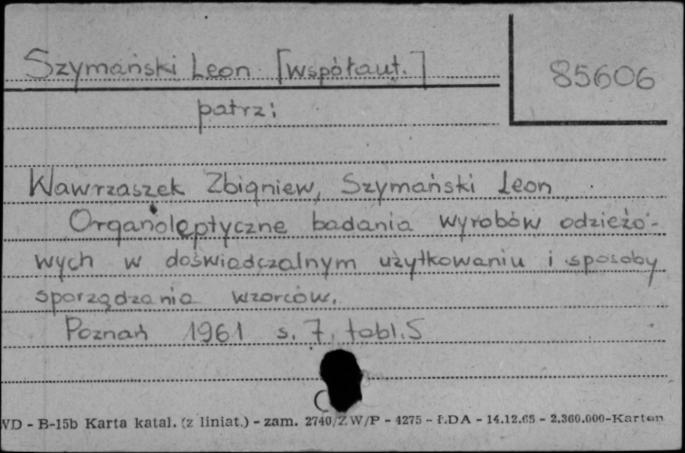 Szymański Leon [współaut.]
85606
patrz:
Wawrzaszek Zbigniew, Szymański Leon
Organoleptyczne badania wyrobów odzieżo-
wych w doświadczalnym użytkowaniu i sposoby
sporządzania wzorców.
Poznań 1961 s. 7, tabl. 5
WD - B-15b Karta katal. (z liniat.) - zam. 2740/ZW/P - 4275 - LDA - 14.12.65 - 2.360.000-Karton